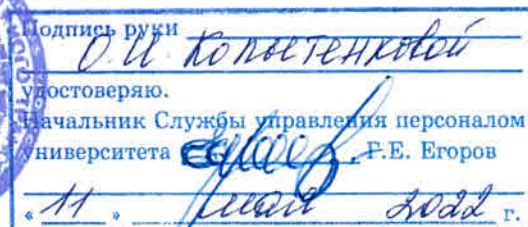 Подпись руки
О.И. Копытенковой
удостоверяю.
Начальник Службы управления персоналом
университета Г.Е. Егоров
« 11 » мая 2022 г.